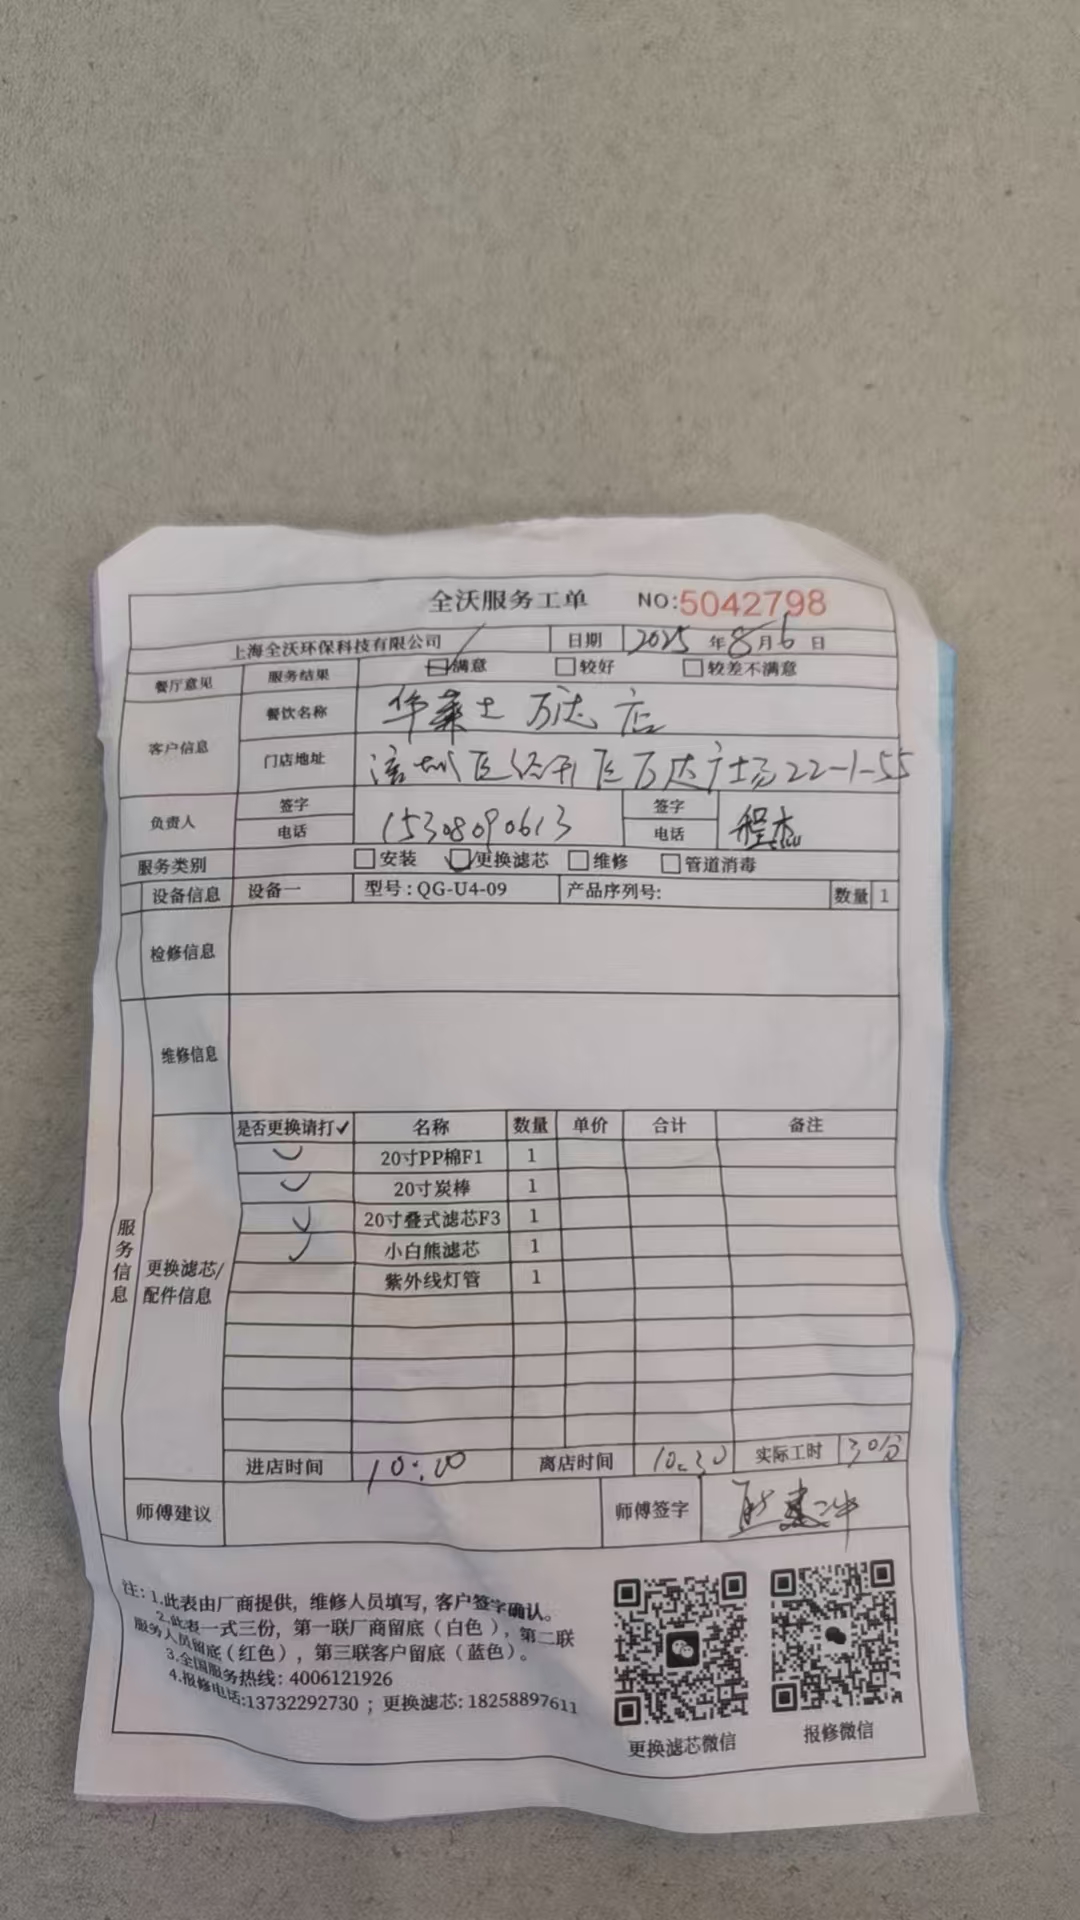 全沃服务工单 NO:5042798
上海全沃环保科技有限公司 日期 2025 年 8 月 6 日
餐厅意见 服务结果 满意 较好 较差不满意
客户信息 餐饮名称 华莱士 万达店
门店地址 涪城区经开区万达广场22-1-55
负责人 签字 签字
电话 15308090613 电话 程杰
服务类别 安装 更换滤芯 维修 管道消毒
设备信息 设备一 型号:QG-U4-09 产品序列号: 数量 1
检修信息
维修信息
服务信息
更换滤芯/配件信息
是否更换请打✓ 名称 数量 单价 合计 备注
✓ 20寸PP棉F1 1
✓ 20寸炭棒 1
✓ 20寸叠式滤芯F3 1
✓ 小白熊滤芯 1
紫外线灯管 1
进店时间 10:00 离店时间 10:30 实际工时 30分
师傅建议 师傅签字
注: 1.此表由厂商提供, 维修人员填写, 客户签字确认。
2.此表一式三份, 第一联厂商留底 (白色), 第二联
服务人员留底 (红色), 第三联客户留底 (蓝色)。
3.全国服务热线: 4006121926
4.报修电话:13732292730 ; 更换滤芯: 18258897611
更换滤芯微信 报修微信